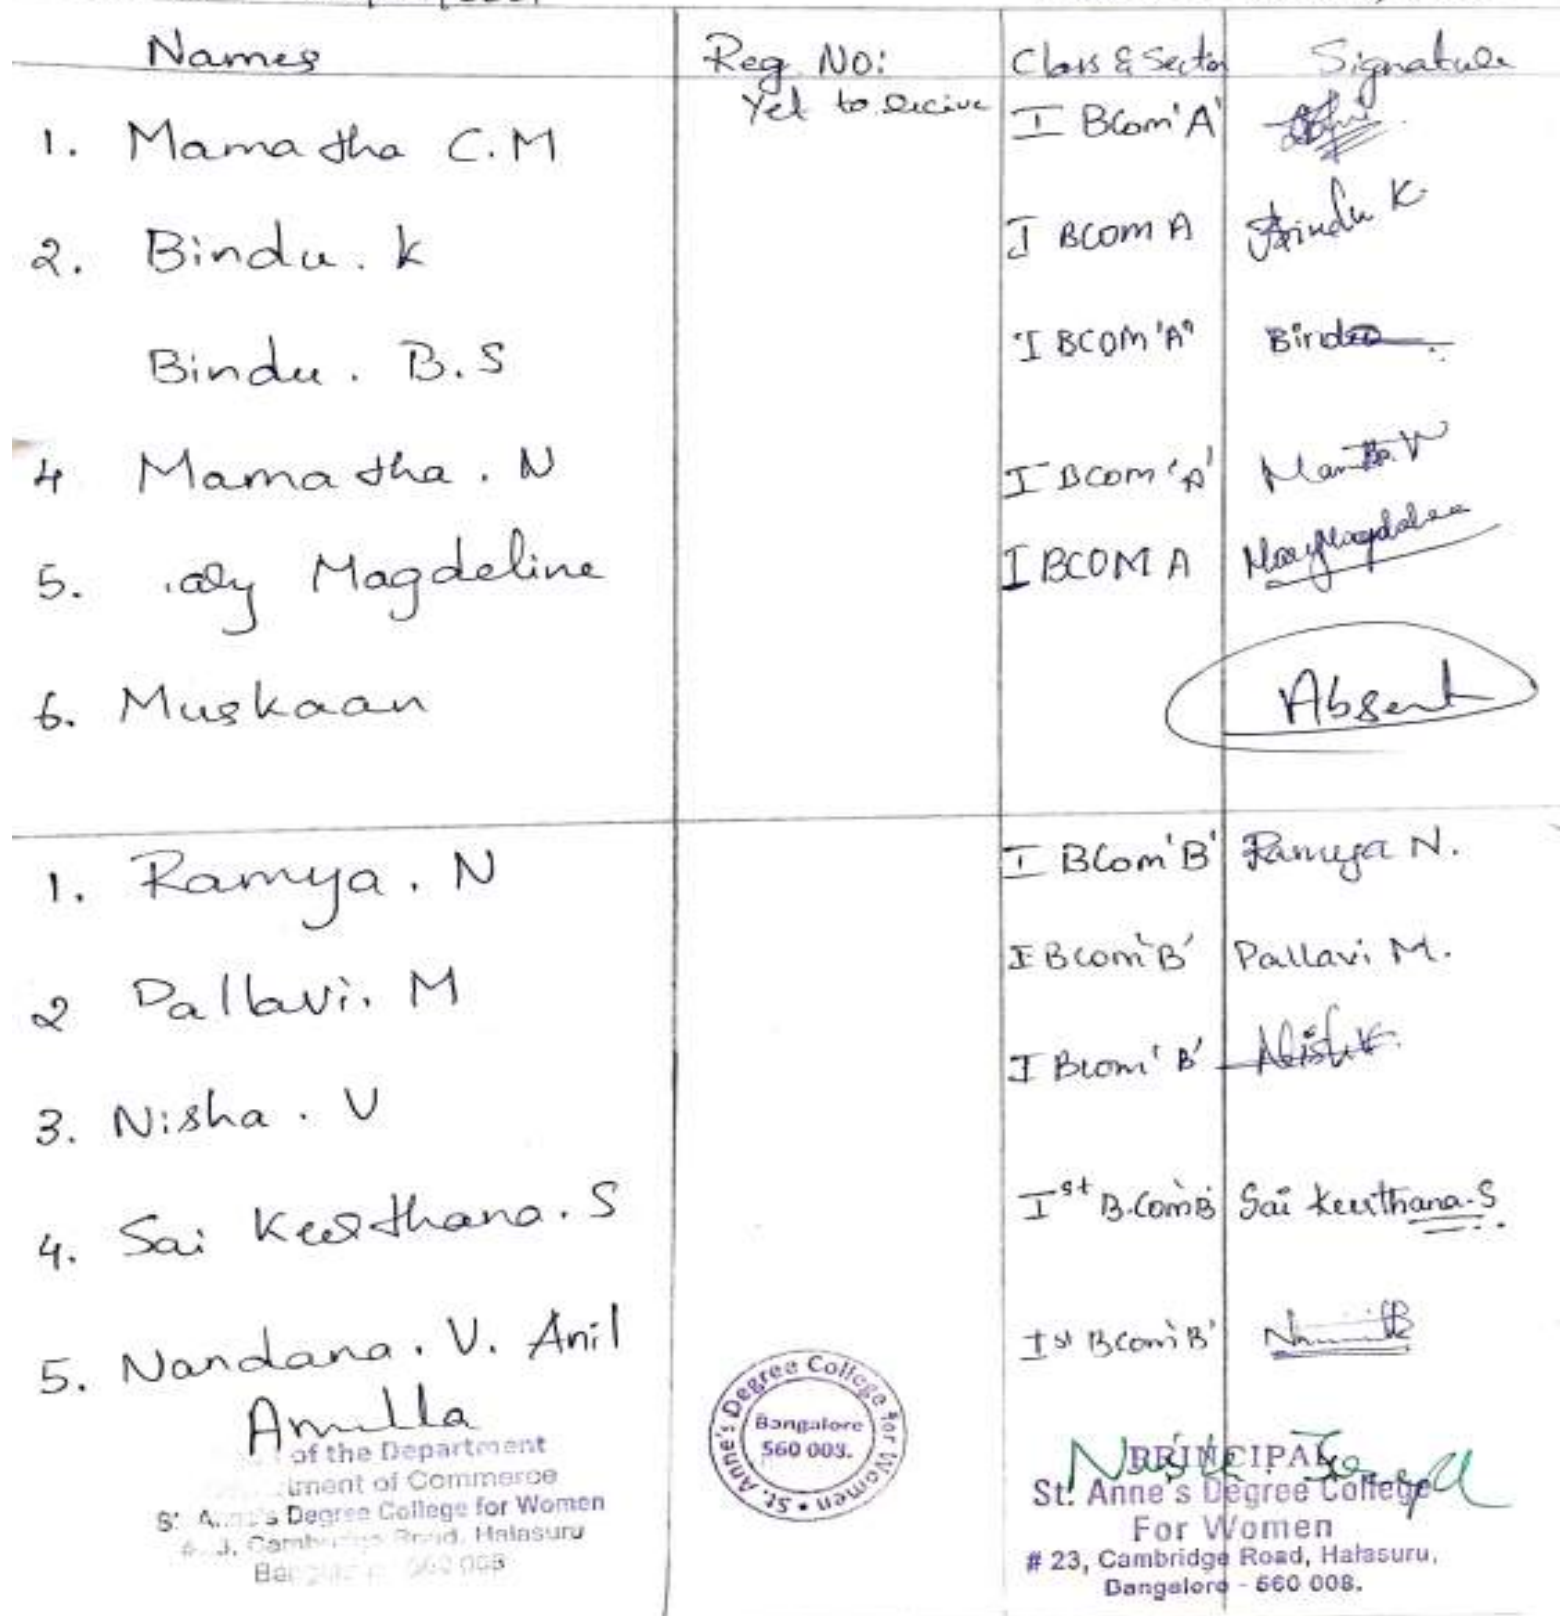 Names Reg No: Class & Section Signature
Yet to recive
1. Mamatha C.M I BCom 'A'
2. Bindu. K I BCOM A Bindu K
Bindu. B.S I BCOM 'A' Bindu
4 Mamatha. N I BCom 'A' Mamatha. N
5. Magdeline I BCOM A Mary Magdaline
6. Muskaan Absent
1. Ramya. N I BCom 'B' Ramya N.
2 Pallavi. M I BCom 'B' Pallavi M.
3. Nisha. V I BCom 'B' Nisha V.
4. Sai Keerthana. S Ist B.Com B Sai Keerthana. S
5. Nandana. V. Anil Ist BCom 'B'
of the Department
of Commerce
St. Anne's Degree College for Women
Cambridge Road, Halasuru
St. Anne's Degree College for Women
Bangalore
560 003.
PRINCIPAL
St. Anne's Degree College
For Women
# 23, Cambridge Road, Halasuru,
Bangalore - 560 008.